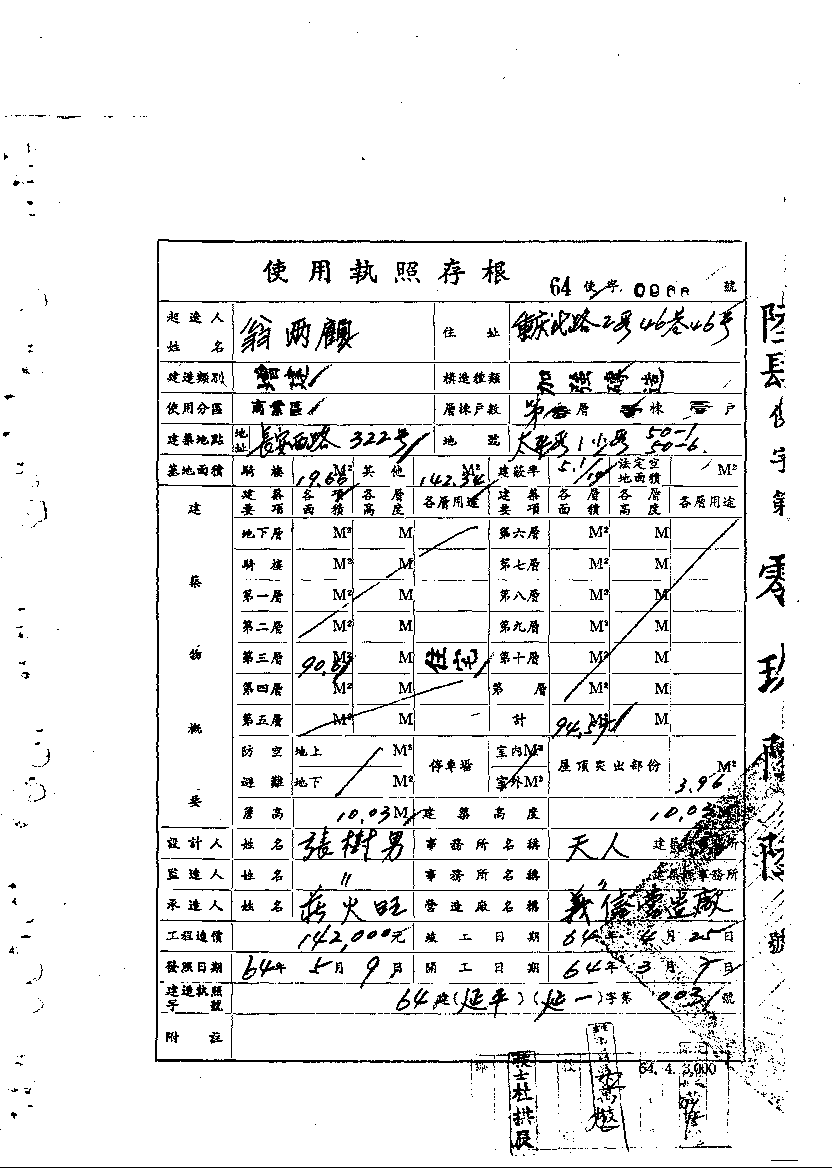 使用執照存根
64 使字 號
起造人姓名 翁兩顧 住址 重庆北路2段46巷46号
建造類別 增建 構造種類 加強磚造
使用分區 商業區 層棟戶數 第 層 棟 戶
建築地點 地址 長安西路322号 地號 太平段1小段 50-1 50-6
基地面積 騎樓 19.66 M² 其他 142.34 M² 建蔽率 法定空地面積 M²
建築物概要
建築要項 各層面積 各層高度 各層用途 建築要項 各層面積 各層高度 各層用途
地下層 M² M 第六層 M² M
騎樓 M² M 第七層 M² M
第一層 M² M 第八層 M² M
第二層 M² M 第九層 M² M
第三層 M² M 住宅 第十層 M² M
第四層 M² M 第 層 M² M
第五層 M² M 計 M²
防空避難 地上 M² 停車場 室內M² 屋頂突出部份 3.96 M²
地下 M² 室外M²
簷高 10.03M 建築高度 10.03
設計人 姓名 張樹男 事務所名稱 天人
監造人 姓名 〃 事務所名稱 〃
承造人 姓名 莊火旺 營造廠名稱 義信營造廠
工程造價 142,000元 竣工日期 64年4月25日
發照日期 64年5月9日 開工日期 64年3月7日
建造執照字號 64建(延平)(延一)字第0031號
附註
64.4.3,000